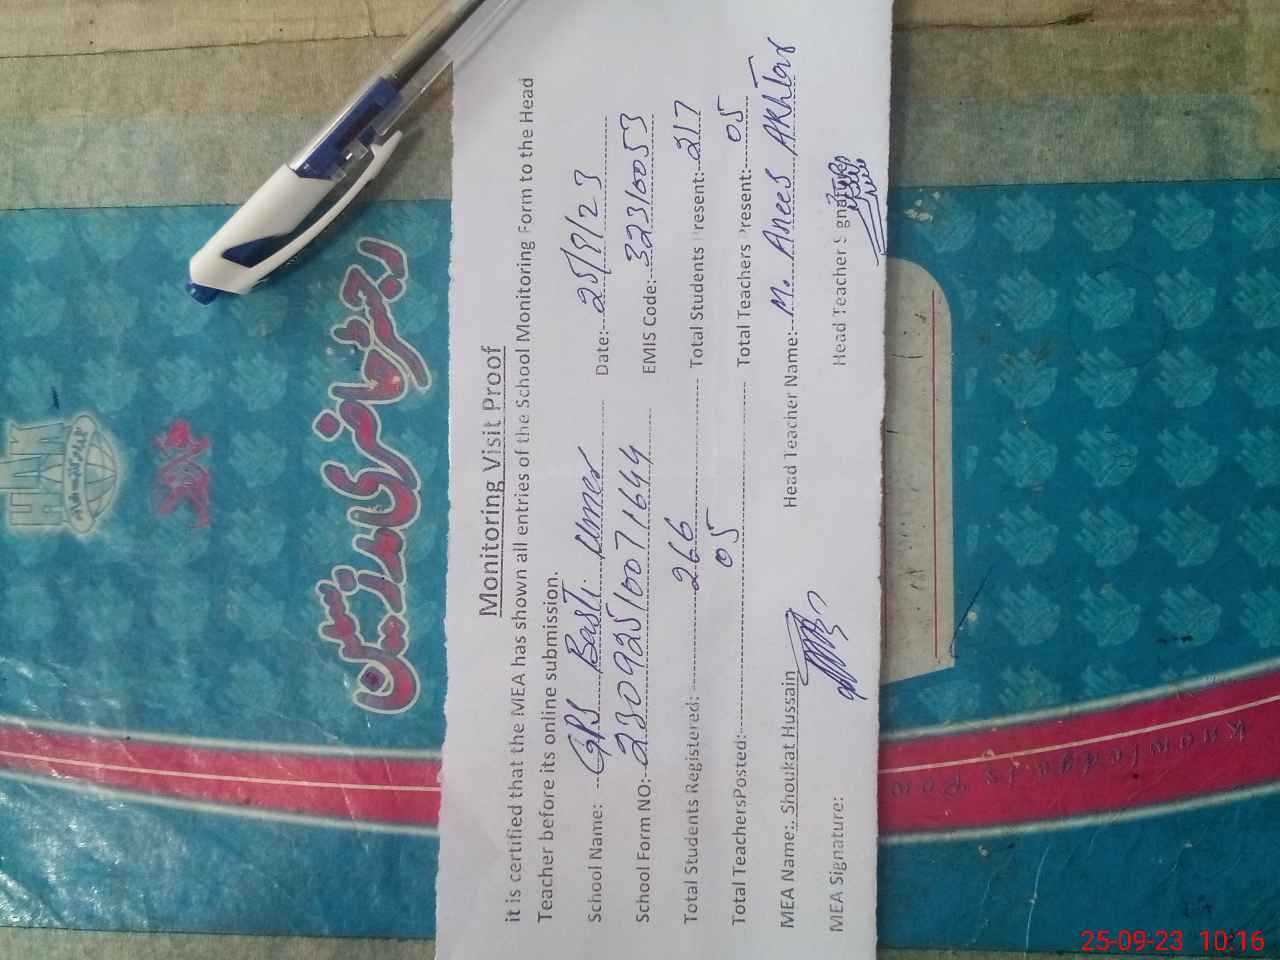 Monitoring Visit Proof
it is certified that the MEA has shown all entries of the School Monitoring Form to the Head
Teacher before its online submission.
School Name: GPS Basti Umer Date: 25/9/23
School Form NO: 23092510071644 EMIS Code: 32310053
Total Students Registered: 266 Total Students Present: 217
Total TeachersPosted: 05 Total Teachers Present: 05
MEA Name: Shoukat Hussain Head Teacher Name: M. Anees Akhter
MEA Signature: Head Teacher Signature
رجسٹر حاضری مدرسین
Knowledge is Pow
25-09-23 10:16